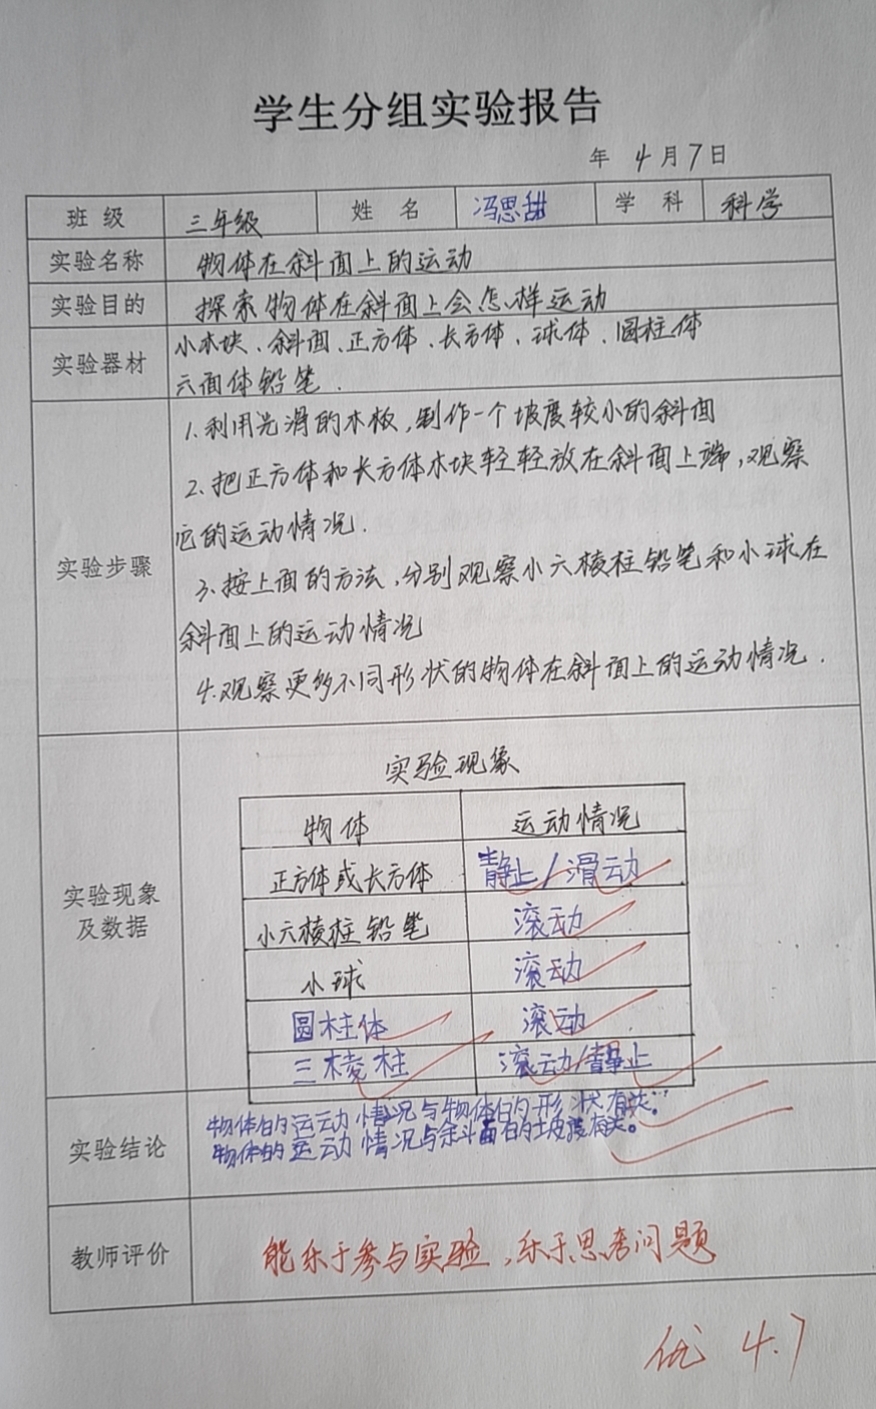 学生分组实验报告
年 4月7日
班级 三年级 姓名 冯思甜 学科 科学
实验名称 物体在斜面上的运动
实验目的 探索物体在斜面上会怎样运动
实验器材 小木块、斜面、正方体、长方体、球体、圆柱体
六面体铅笔.
1.利用光滑的木板,制作一个坡度较小的斜面
2.把正方体和长方体木块轻轻放在斜面上端,观察
它的运动情况.
实验步骤
3.按上面的方法,分别观察小六棱柱铅笔和小球在
斜面上的运动情况
4.观察更多不同形状的物体在斜面上的运动情况.
实验现象
物体 运动情况
正方体或长方体 静止/滑动
实验现象
及数据
小六棱柱铅笔 滚动
小球 滚动
圆柱体 滚动
三棱柱 滚动/静止
实验结论 物体的运动情况与物体的形状有关.
物体的运动情况与斜面的坡度有关。
教师评价 能乐于参与实验,乐于思考问题
优 4.7